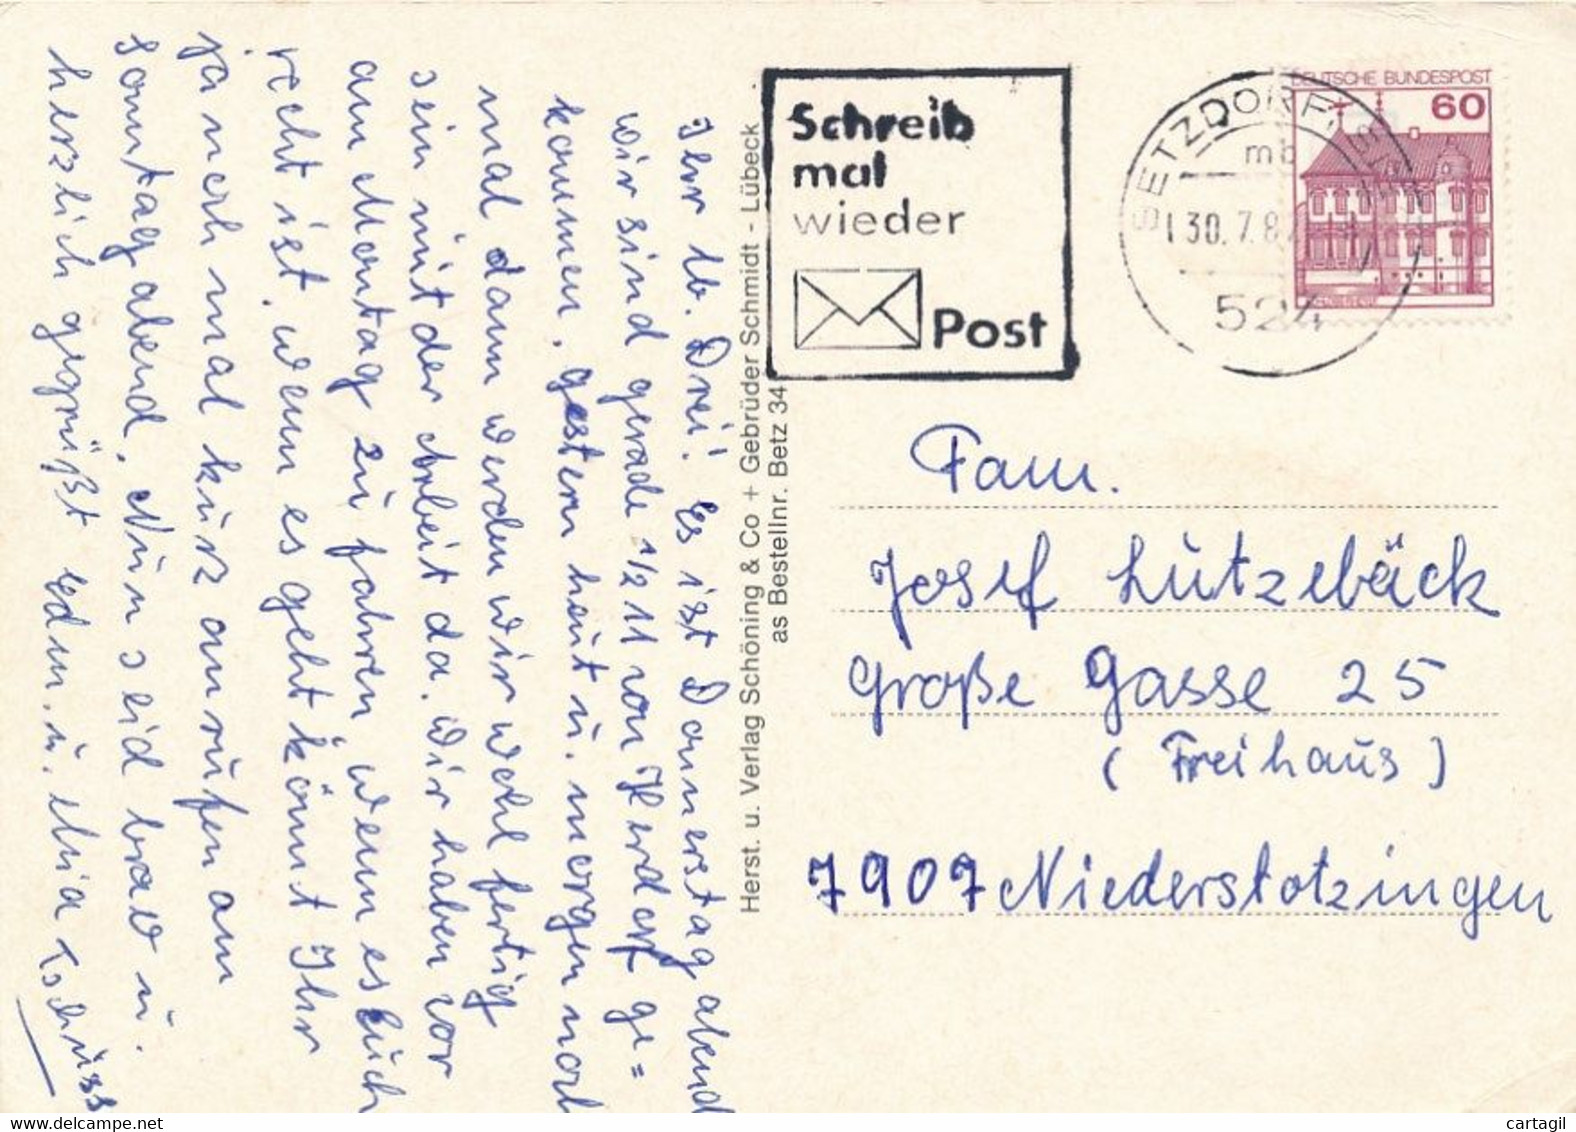 Ihr lb. Drei! Es ist Donnerstag abend
wir sind gerade 1/2 11 von Herdorf ge=
kommen, gestern heut u. morgen noch
mal dann werden wir wohl fertig
sein mit der Arbeit da. Wir haben vor
am Montag zu fahren wenn es Euch
recht ist, wenn es geht könnt Ihr
ja noch mal kurz anrufen am
Sonntag abend. Nun seid brav u.
herzlich gegrüßt Edm. u. Mia
Tschüss
Herst. u. Verlag Schöning & Co + Gebrüder Schmidt - Lübeck
as Bestellnr. Betz 34
Schreib
mal
wieder
Post
BETZDORF, SIEG
mb
30.7.8
524
DEUTSCHE BUNDESPOST
60
Fam.
Josef Lützebäck
Große Gasse 25
(Freihaus)
7907 Niederstotzingen
cartagil